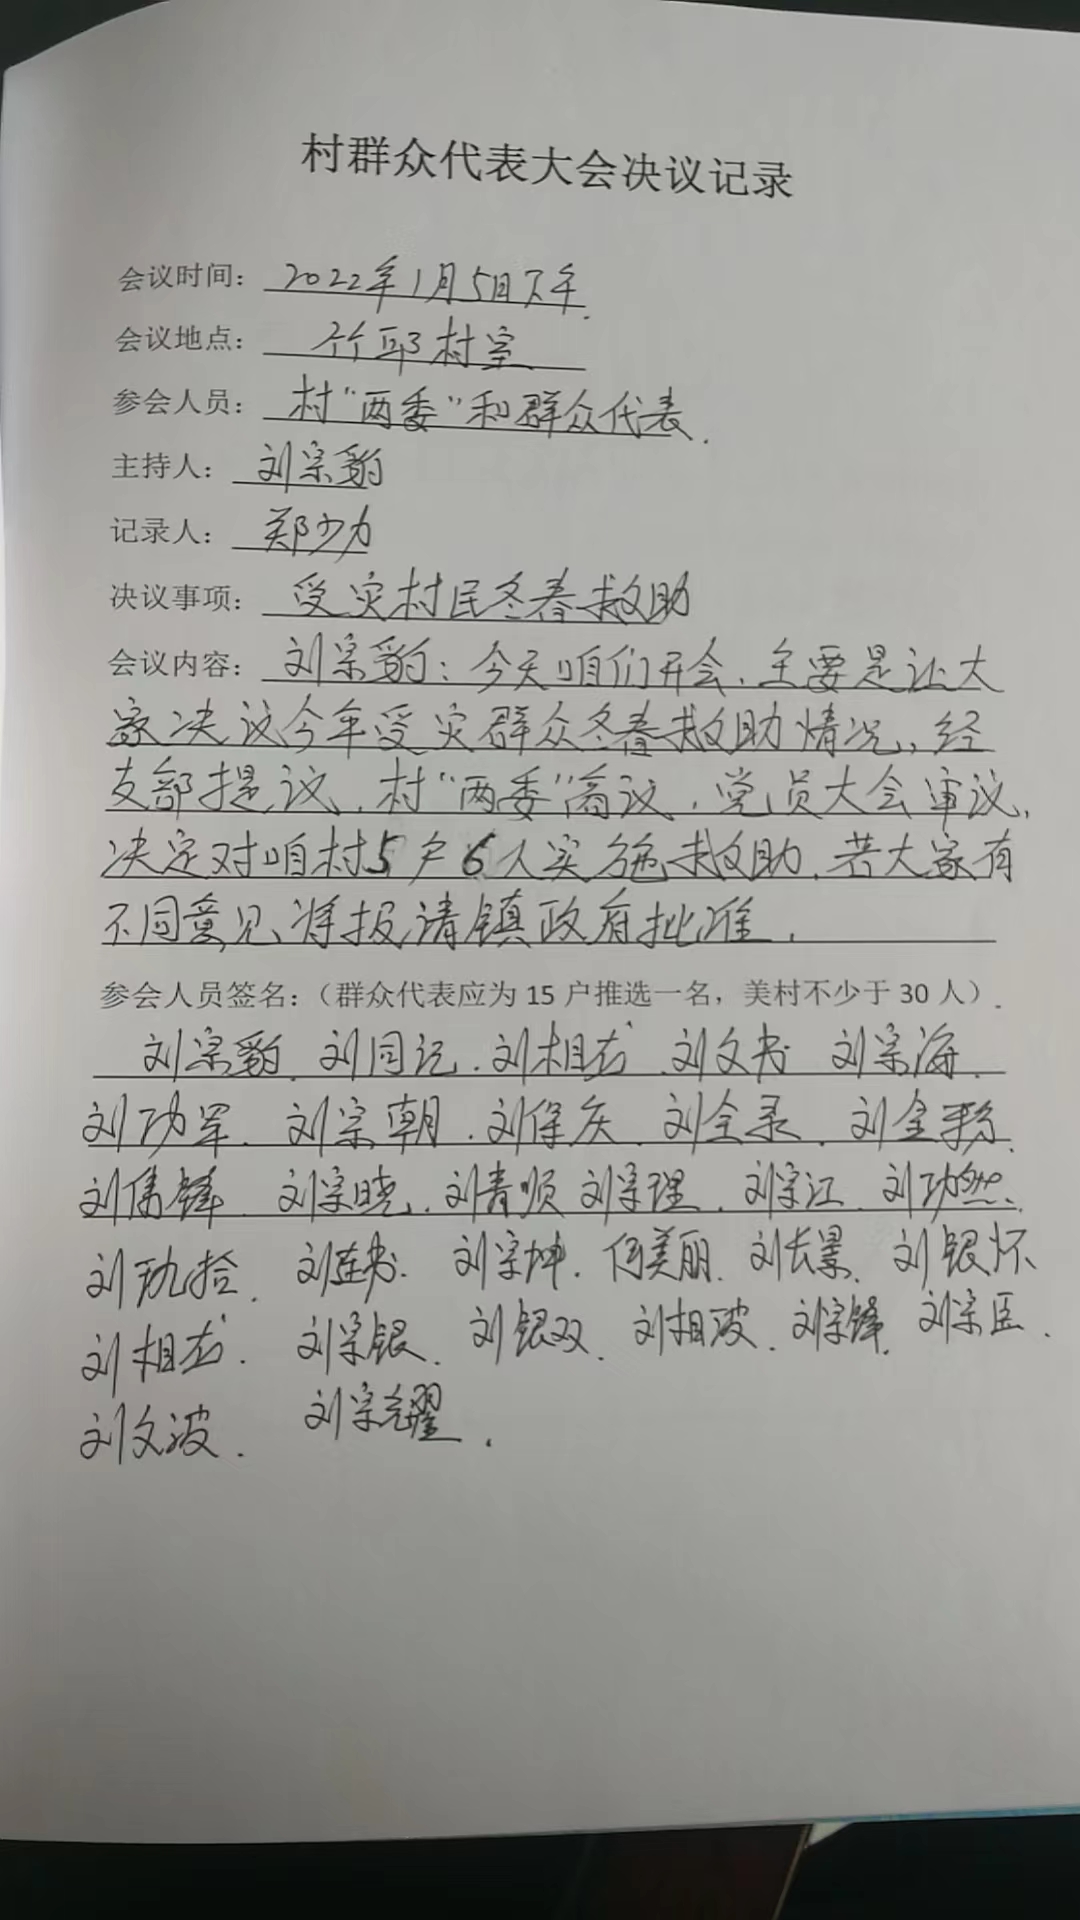 村群众代表大会决议记录
会议时间：2022年1月5日下午.
会议地点：竹邱村室
参会人员：村“两委”和群众代表.
主持人：刘宗豹
记录人：郑少力
决议事项：受灾村民冬春救助
会议内容：刘宗豹：今天咱们开会，主要是让大
家决议今年受灾群众冬春救助情况，经
支部提议，村“两委”商议，党员大会审议，
决定对咱村5户6人实施救助，若大家有
不同意见将报请镇政府批准.
参会人员签名：（群众代表应为15户推选一名，美村不少于30人）.
刘宗豹.刘同记.刘相龙.刘文书 刘宗海.
刘功军.刘宗朝.刘保庆.刘全录.刘金
刘伟锋 刘宗晓.刘青顺 刘宗理.刘宗江.刘功然.
刘 拾.刘连书.刘宗坤.何美丽.刘长景.刘银怀
刘相龙.刘宗银.刘银双.刘相波.刘宗锋.刘宗臣.
刘文波.刘宗耀.